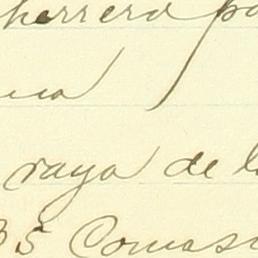 herrera pa
na
raya de l
35 Comas